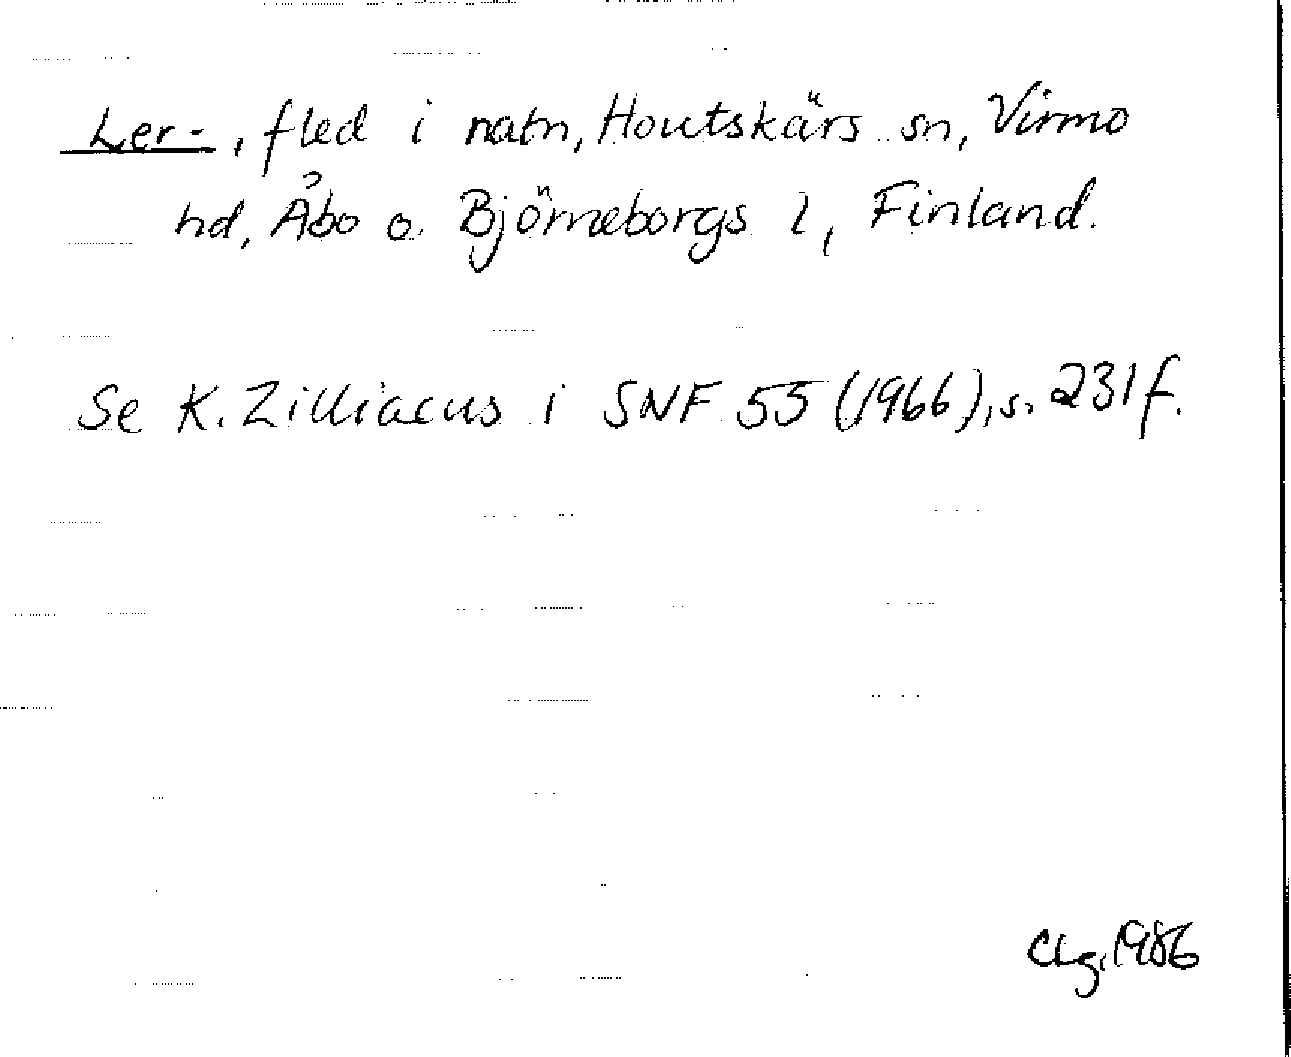 Ler-, fled i natn, Houtskärs sn, Virmo
hd, Åbo o. Björneborgs l, Finland.
Se K. Zilliacus i SNF 55 (1966), s. 231 f.
CLg, 1986